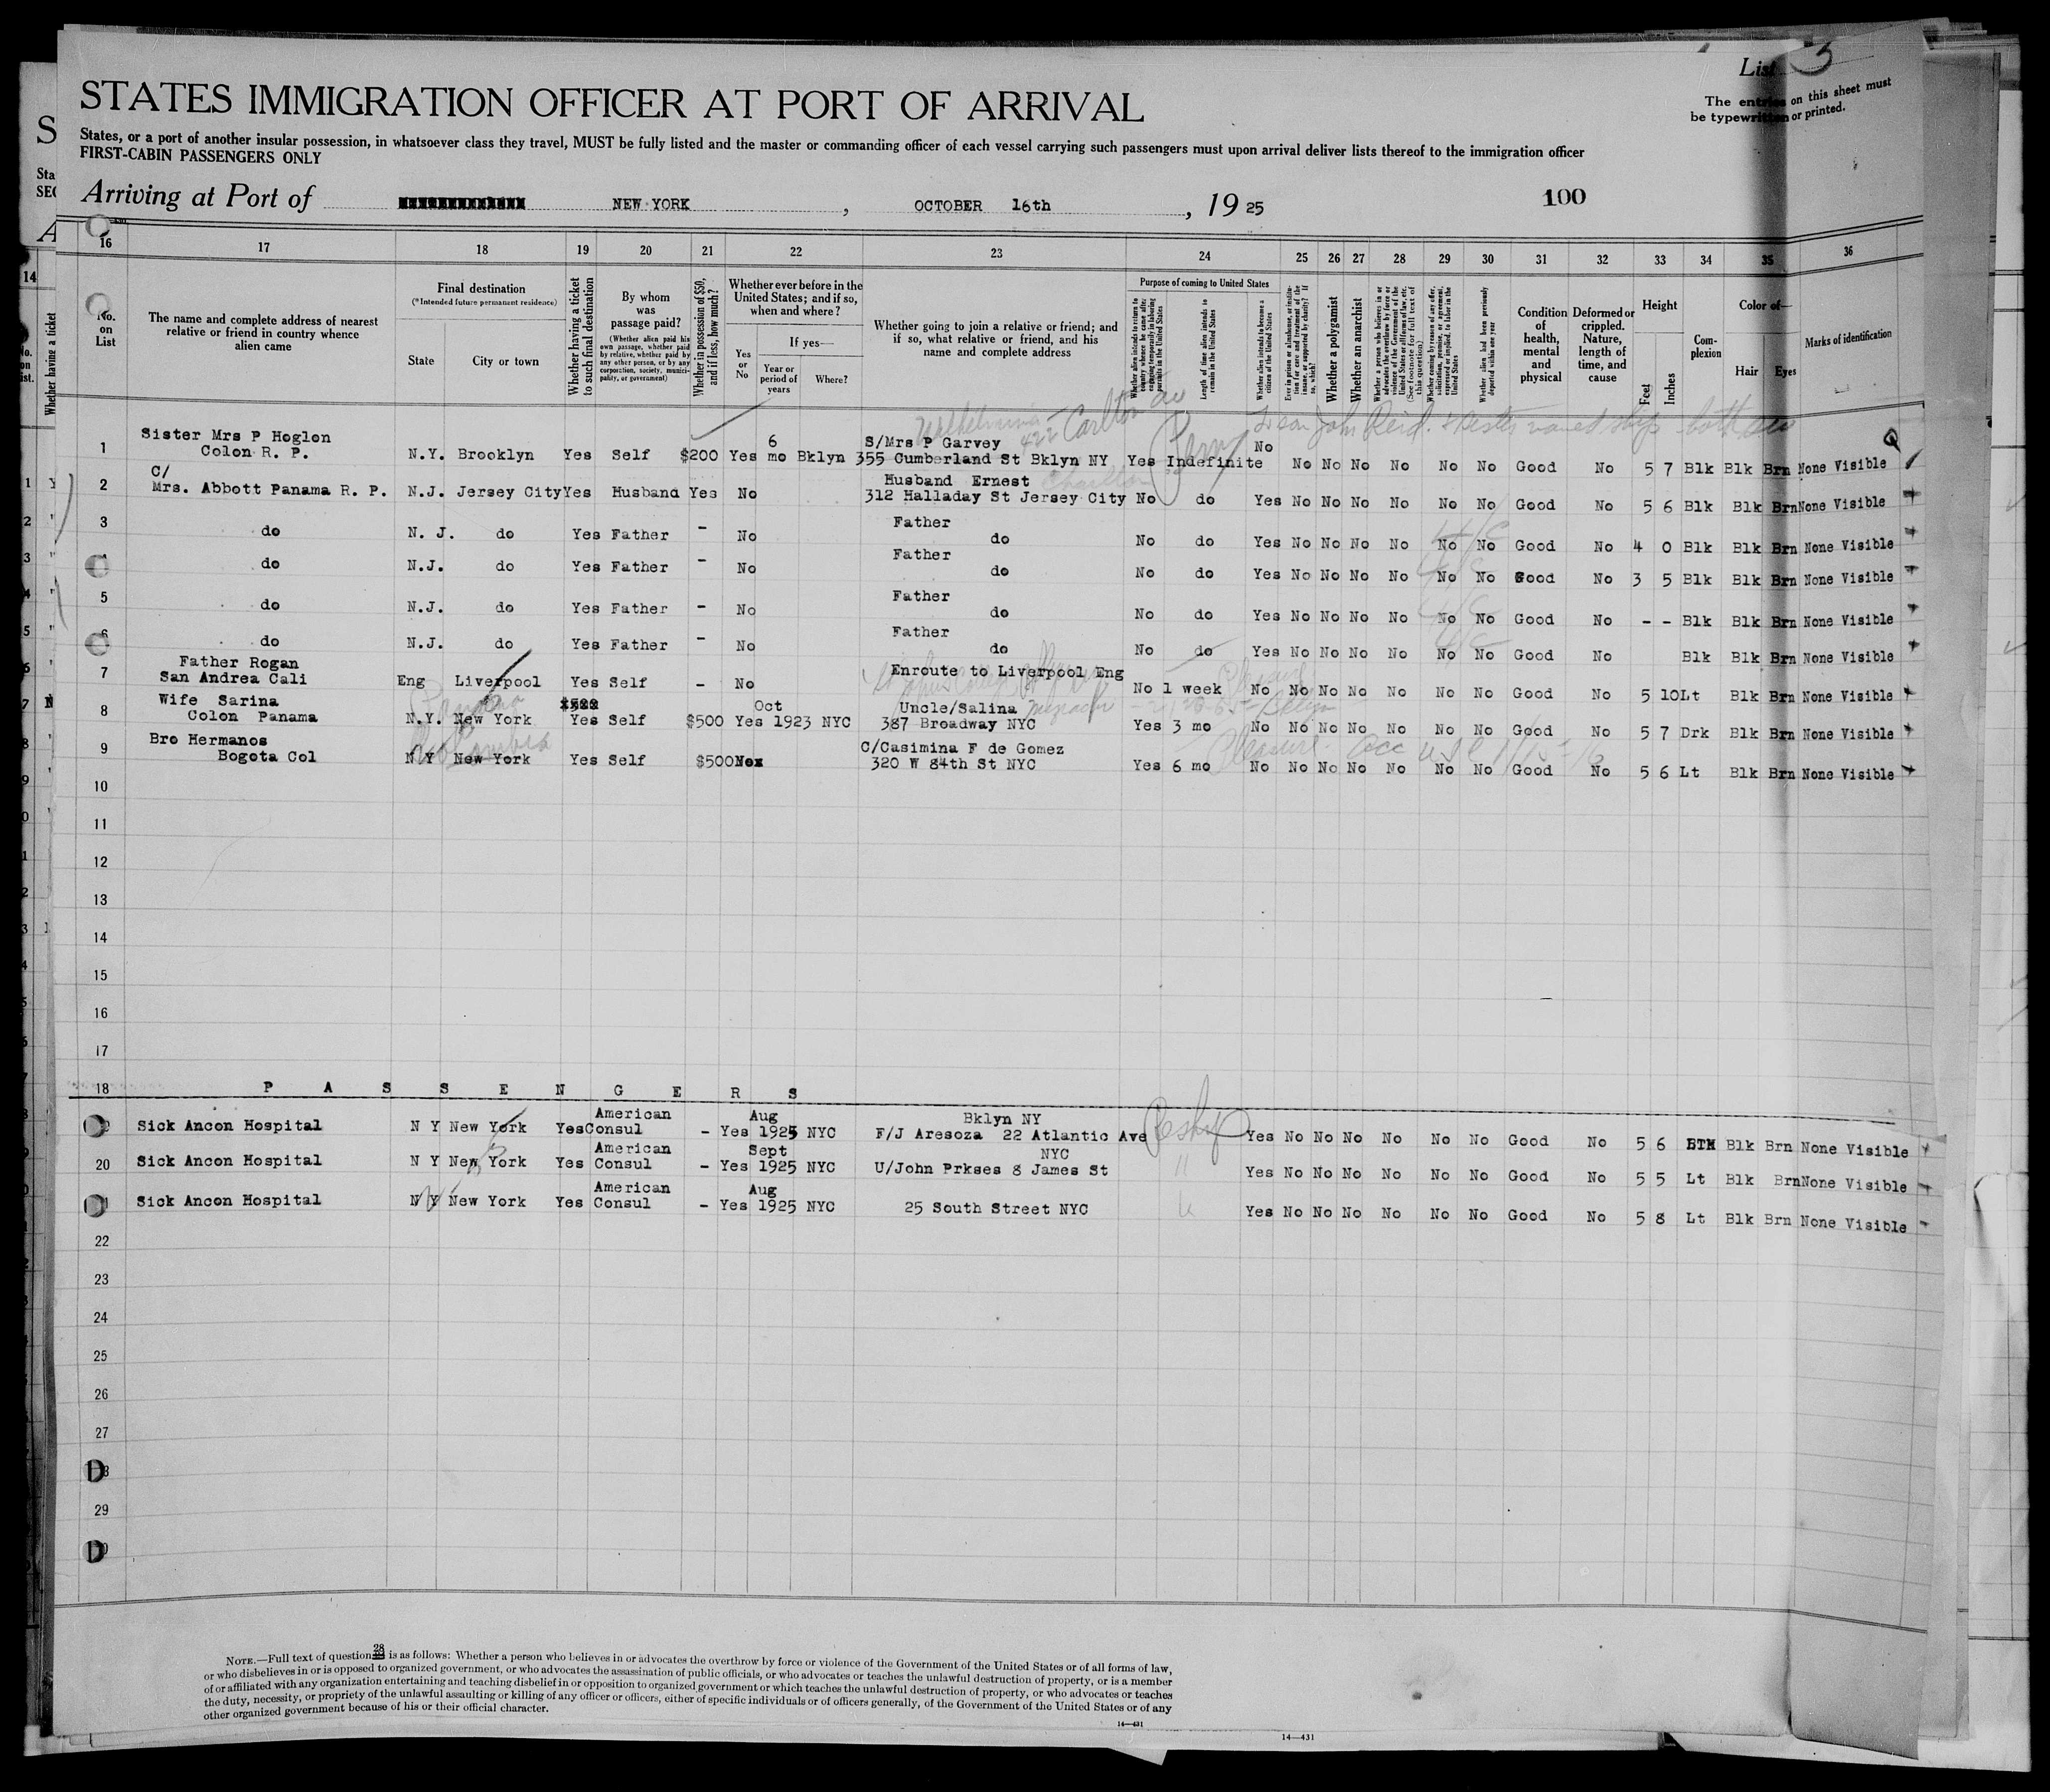 List 3
The entries on this sheet must
be typewritten or printed.
STATES IMMIGRATION OFFICER AT PORT OF ARRIVAL
States, or a port of another insular possession, in whatsoever class they travel, MUST be fully listed and the master or commanding officer of each vessel carrying such passengers must upon arrival deliver lists thereof to the immigration officer
FIRST-CABIN PASSENGERS ONLY
Arriving at Port of NEW YORK, OCTOBER 16th, 19 25
100
16 17 18 19 20 21 22 23 24 25 26 27 28 29 30 31 32 33 34 35 36
No. on List
The name and complete address of nearest relative or friend in country whence alien came
Final destination
(*Intended future permanent residence)
State
City or town
Whether having a ticket to such final destination
By whom was passage paid?
(Whether alien paid his own passage, whether paid by relative, whether paid by any other person, or by any corporation, society, municipality, or government)
Whether in possession of $50, and if less, how much?
Whether ever before in the United States; and if so, when and where?
Yes or No
If yes—
Year or period of years
Where?
Whether going to join a relative or friend; and if so, what relative or friend, and his name and complete address
Purpose of coming to United States
Length of time alien intends to remain in the United States
Whether alien intends to become a citizen of the United States
Whether a polygamist
Whether an anarchist
Whether alien had been previously deported within one year
Condition of health, mental and physical
Deformed or crippled. Nature, length of time, and cause
Height
Feet
Inches
Complexion
Color of—
Hair
Eyes
Marks of identification
422 Carlton av
1 Sister Mrs P Hoglon
Colon R. P. N.Y. Brooklyn Yes Self $200 Yes 6 mo Bklyn S/Mrs P Garvey
355 Cumberland St Bklyn NY Yes Indefinite No No No No No No No Good No 5 7 Blk Blk Brn None Visible
2 C/
Mrs. Abbott Panama R. P. N.J. Jersey City Yes Husband Yes No Husband Ernest
312 Halladay St Jersey City No do Yes No No No No No No Good No 5 6 Blk Blk Brn None Visible
3 do N. J. do Yes Father - No Father
do No do Yes No No No No No No Good No 4 0 Blk Blk Brn None Visible
4 do N.J. do Yes Father - No Father
do No do Yes No No No No No No Good No 3 5 Blk Blk Brn None Visible
5 do N.J. do Yes Father - No Father
do No do Yes No No No No No No Good No - - Blk Blk Brn None Visible
6 do N.J. do Yes Father - No Father
do No do Yes No No No No No No Good No Blk Blk Brn None Visible
7 Father Rogan
San Andrea Cali Eng Liverpool Yes Self - No Enroute to Liverpool Eng
No 1 week No No No No No No No Good No 5 10 Lt Blk Brn None Visible
8 Wife Sarina
Colon Panama N.Y. New York Yes Self $500 Yes Oct 1923 NYC Uncle/Salina
387 Broadway NYC Yes 3 mo No No No No No No No Good No 5 7 Drk Blk Brn None Visible
Panama
Colombia
9 Bro Hermanos
Bogota Col N Y New York Yes Self $500 No C/Casimina F de Gomez
320 W 84th St NYC Yes 6 mo No No No No No No No Good No 5 6 Lt Blk Brn None Visible
Pleasure.
10
11
12
13
14
15
16
17
18 P A S S E N G E R S
Sick Ancon Hospital N Y New York Yes American Consul - Yes Aug 1925 NYC Bklyn NY
F/J Aresoza 22 Atlantic Ave Yes No No No No No No Good No 5 6 Blk Brn None Visible
20 Sick Ancon Hospital N Y New York Yes American Consul - Yes Sept 1925 NYC NYC
U/John Prkses 8 James St Yes No No No No No No Good No 5 5 Lt Blk Brn None Visible
Sick Ancon Hospital N Y New York Yes American Consul - Yes Aug 1925 NYC 25 South Street NYC Yes No No No No No No Good No 5 8 Lt Blk Brn None Visible
22
23
24
25
26
27
29
NOTE.—Full text of question 28 is as follows: Whether a person who believes in or advocates the overthrow by force or violence of the Government of the United States or of all forms of law,
or who disbelieves in or is opposed to organized government, or who advocates the assassination of public officials, or who advocates or teaches the unlawful destruction of property, or is a member
of or affiliated with any organization entertaining and teaching disbelief in or opposition to organized government or which teaches the unlawful destruction of property, or who advocates or teaches
the duty, necessity, or propriety of the unlawful assaulting or killing of any officer or officers, either of specific individuals or of officers generally, of the Government of the United States or of any
other organized government because of his or their official character.
14—431
14—431